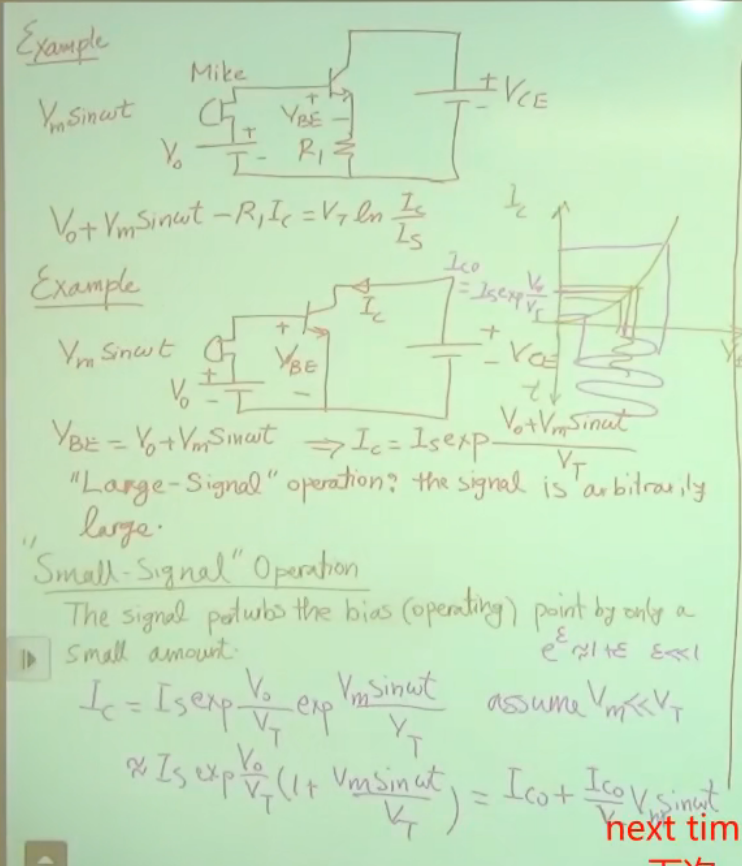 Example
Mike
Vm sinωt
+ VBE −
+ − VCE
V0 + −
R1
V0 + Vm sinωt − R1 IC = VT ln IC/IS
IC
Example
IC0 = IS exp V0/VT
IC
Vm sinωt
+ VBE −
+ − VCE
V0 + −
t
VBE = V0 + Vm sinωt ⇒ IC = IS exp (V0 + Vm sinωt)/VT
"Large-Signal" operation: the signal is arbitrarily
large.
"Small-Signal" Operation
The signal perturbs the bias (operating) point by only a
small amount.
e^ε ≈ 1+ε ε<<1
IC = IS exp V0/VT exp Vm sinωt/VT assume Vm << VT
≈ IS exp V0/VT (1 + Vm sinωt/VT) = IC0 + IC0/V Vm sinωt
next tim